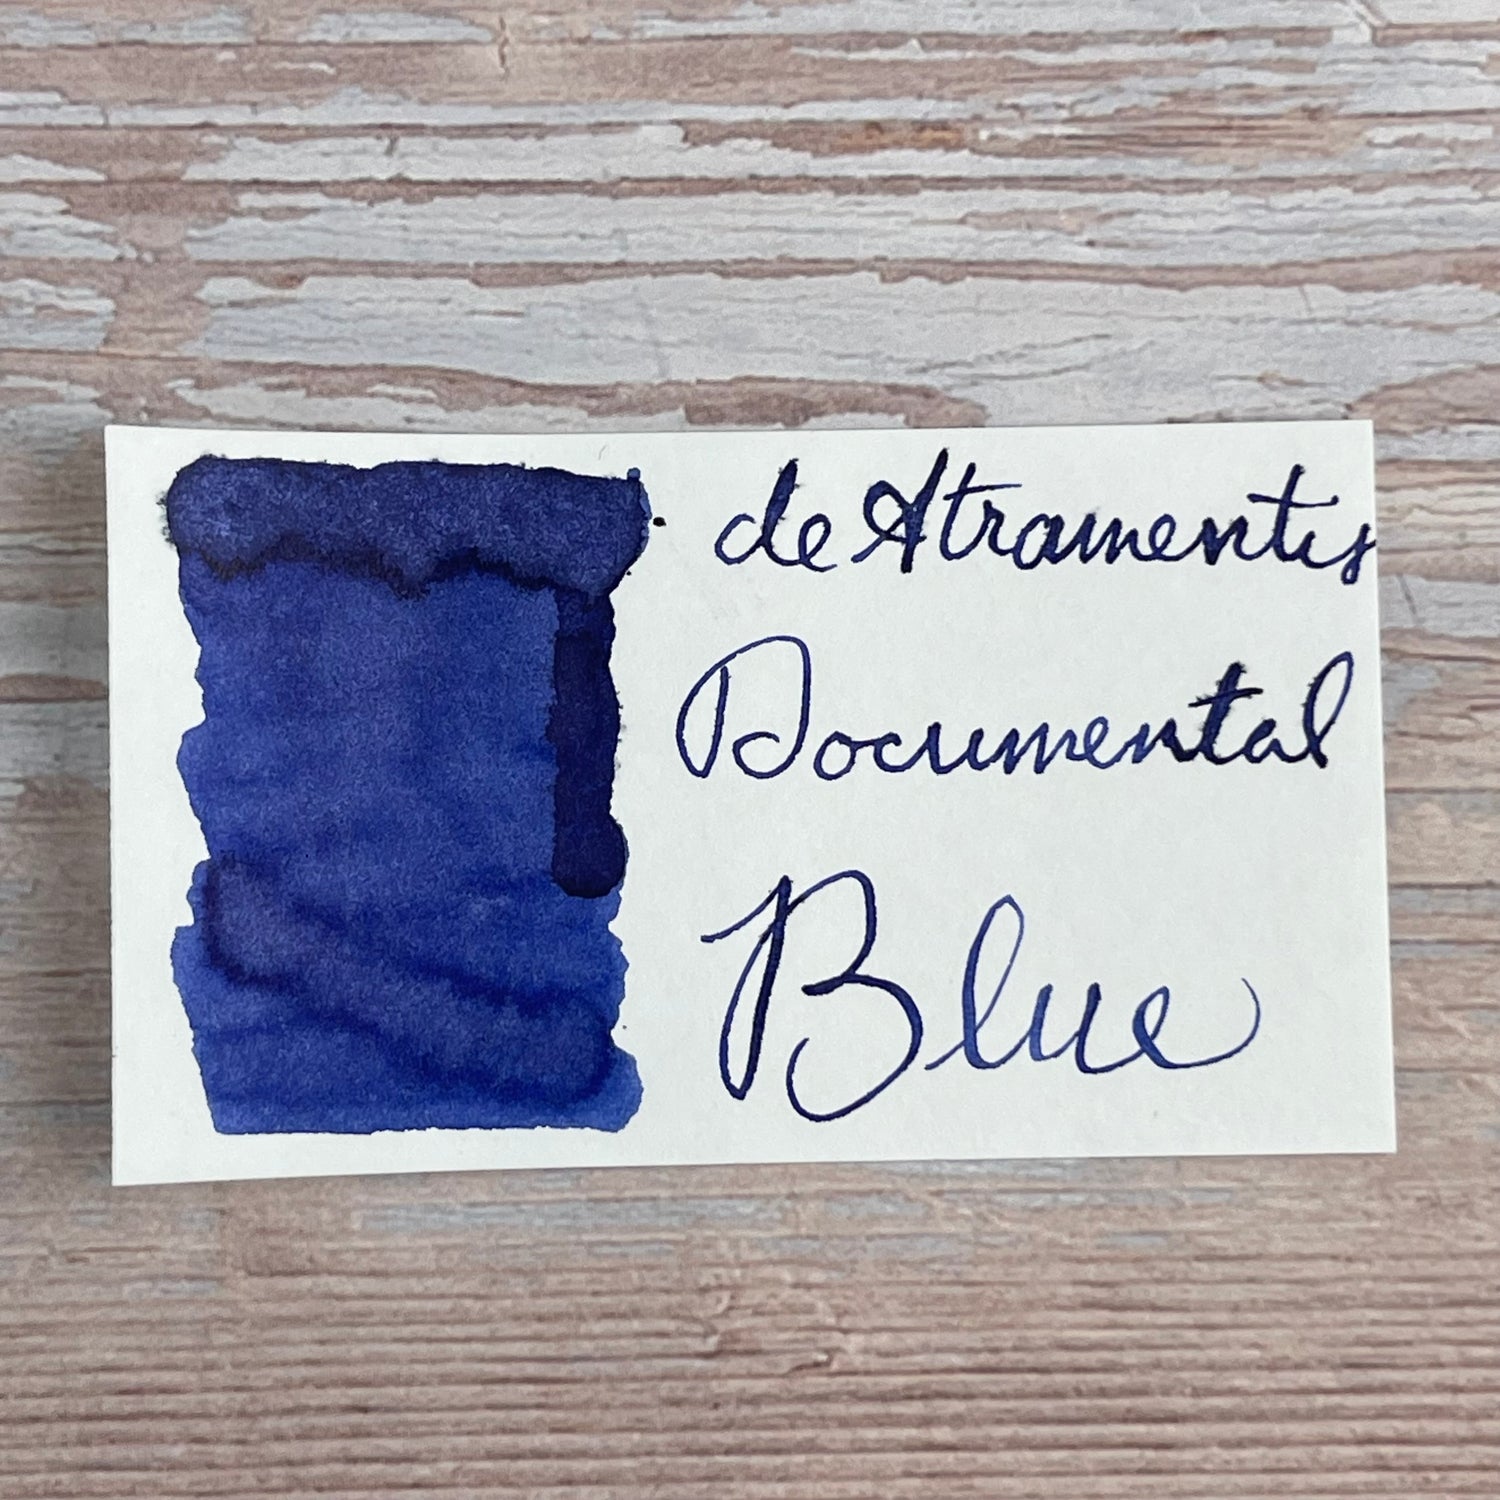 de Atramentis
Documental
Blue